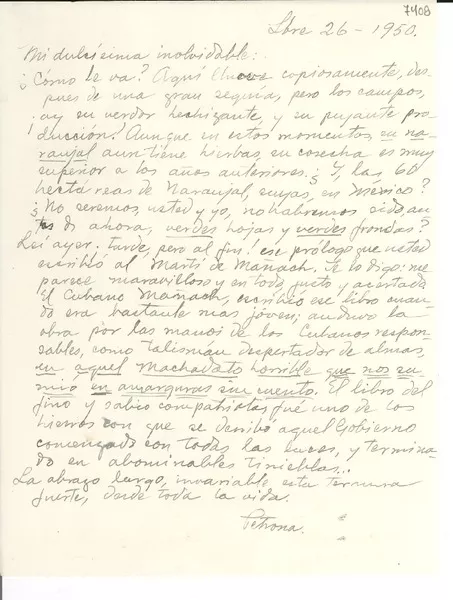 7408
Sbre 26 - 1950.
Mi dulcísima inolvidable:
¿Cómo le va? Aquí llueve copiosamente, des-
pues de una gran sequía, pero los campos,
¡ay su verdor hechizante, y su pujante pro-
ducción! Aunque en estos momentos, su na-
ranjal aun tiene hierbas su cosecha es muy
superior a los años anteriores. ¿Y, las 60
hectáreas de Naranjal, suyas, en México?
¿No seremos, usted y yo, no habremos sido, an-
tes de ahora, verdes hojas y verdes frondas?
Leí ayer: tarde, pero al fin! ese prólogo que usted
escribió al Martí de Mañach. Te lo digo: me
parece maravilloso y en todo justo y acertado
El Cubano Mañach, escribió ese libro cuan-
do era bastante mas jóven; anduvo la
obra por las manos de los Cubanos respon-
sables, como talismán despertador de almas,
en aquel Machadato horrible que nos su-
mió en amarguras sin cuento. El libro del
fino y sabio compatriota, fué uno de los
hierros con que se derribó aquel Gobierno
comenzado con todas las luces, y termina-
do en abominables tinieblas...
La abrazo largo, invariable esta ternura
fuerte, desde toda la vida.
Petrona.